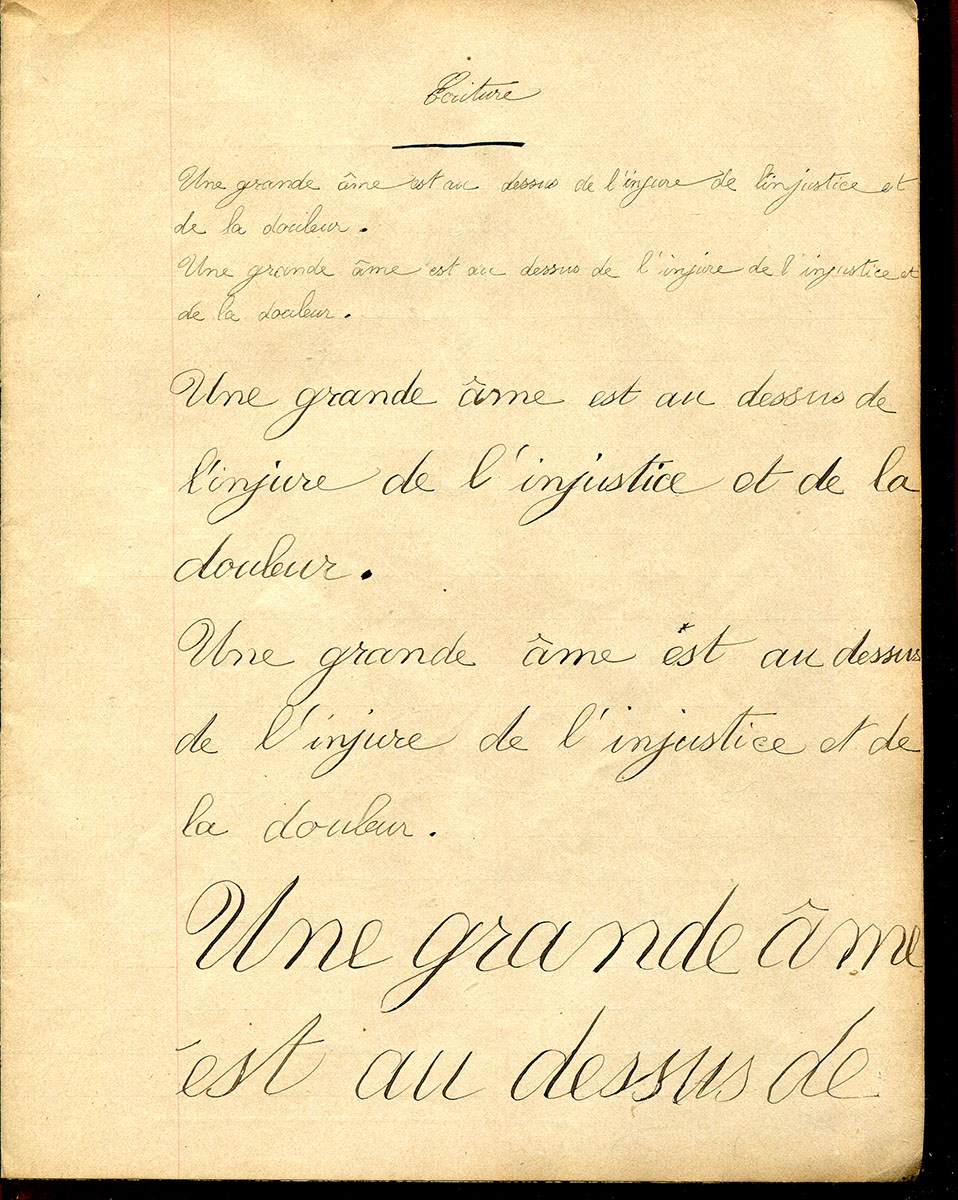 Ecriture
Une grande âme est au dessus de l'injure de l'injustice et
de la douleur.
Une grande âme est au dessus de l'injure de l'injustice et
de la douleur.
Une grande âme est au dessus de
l'injure de l'injustice et de la
douleur.
Une grande âme est au dessus
de l'injure de l'injustice et de
la douleur.
Une grande âme
est au dessus de